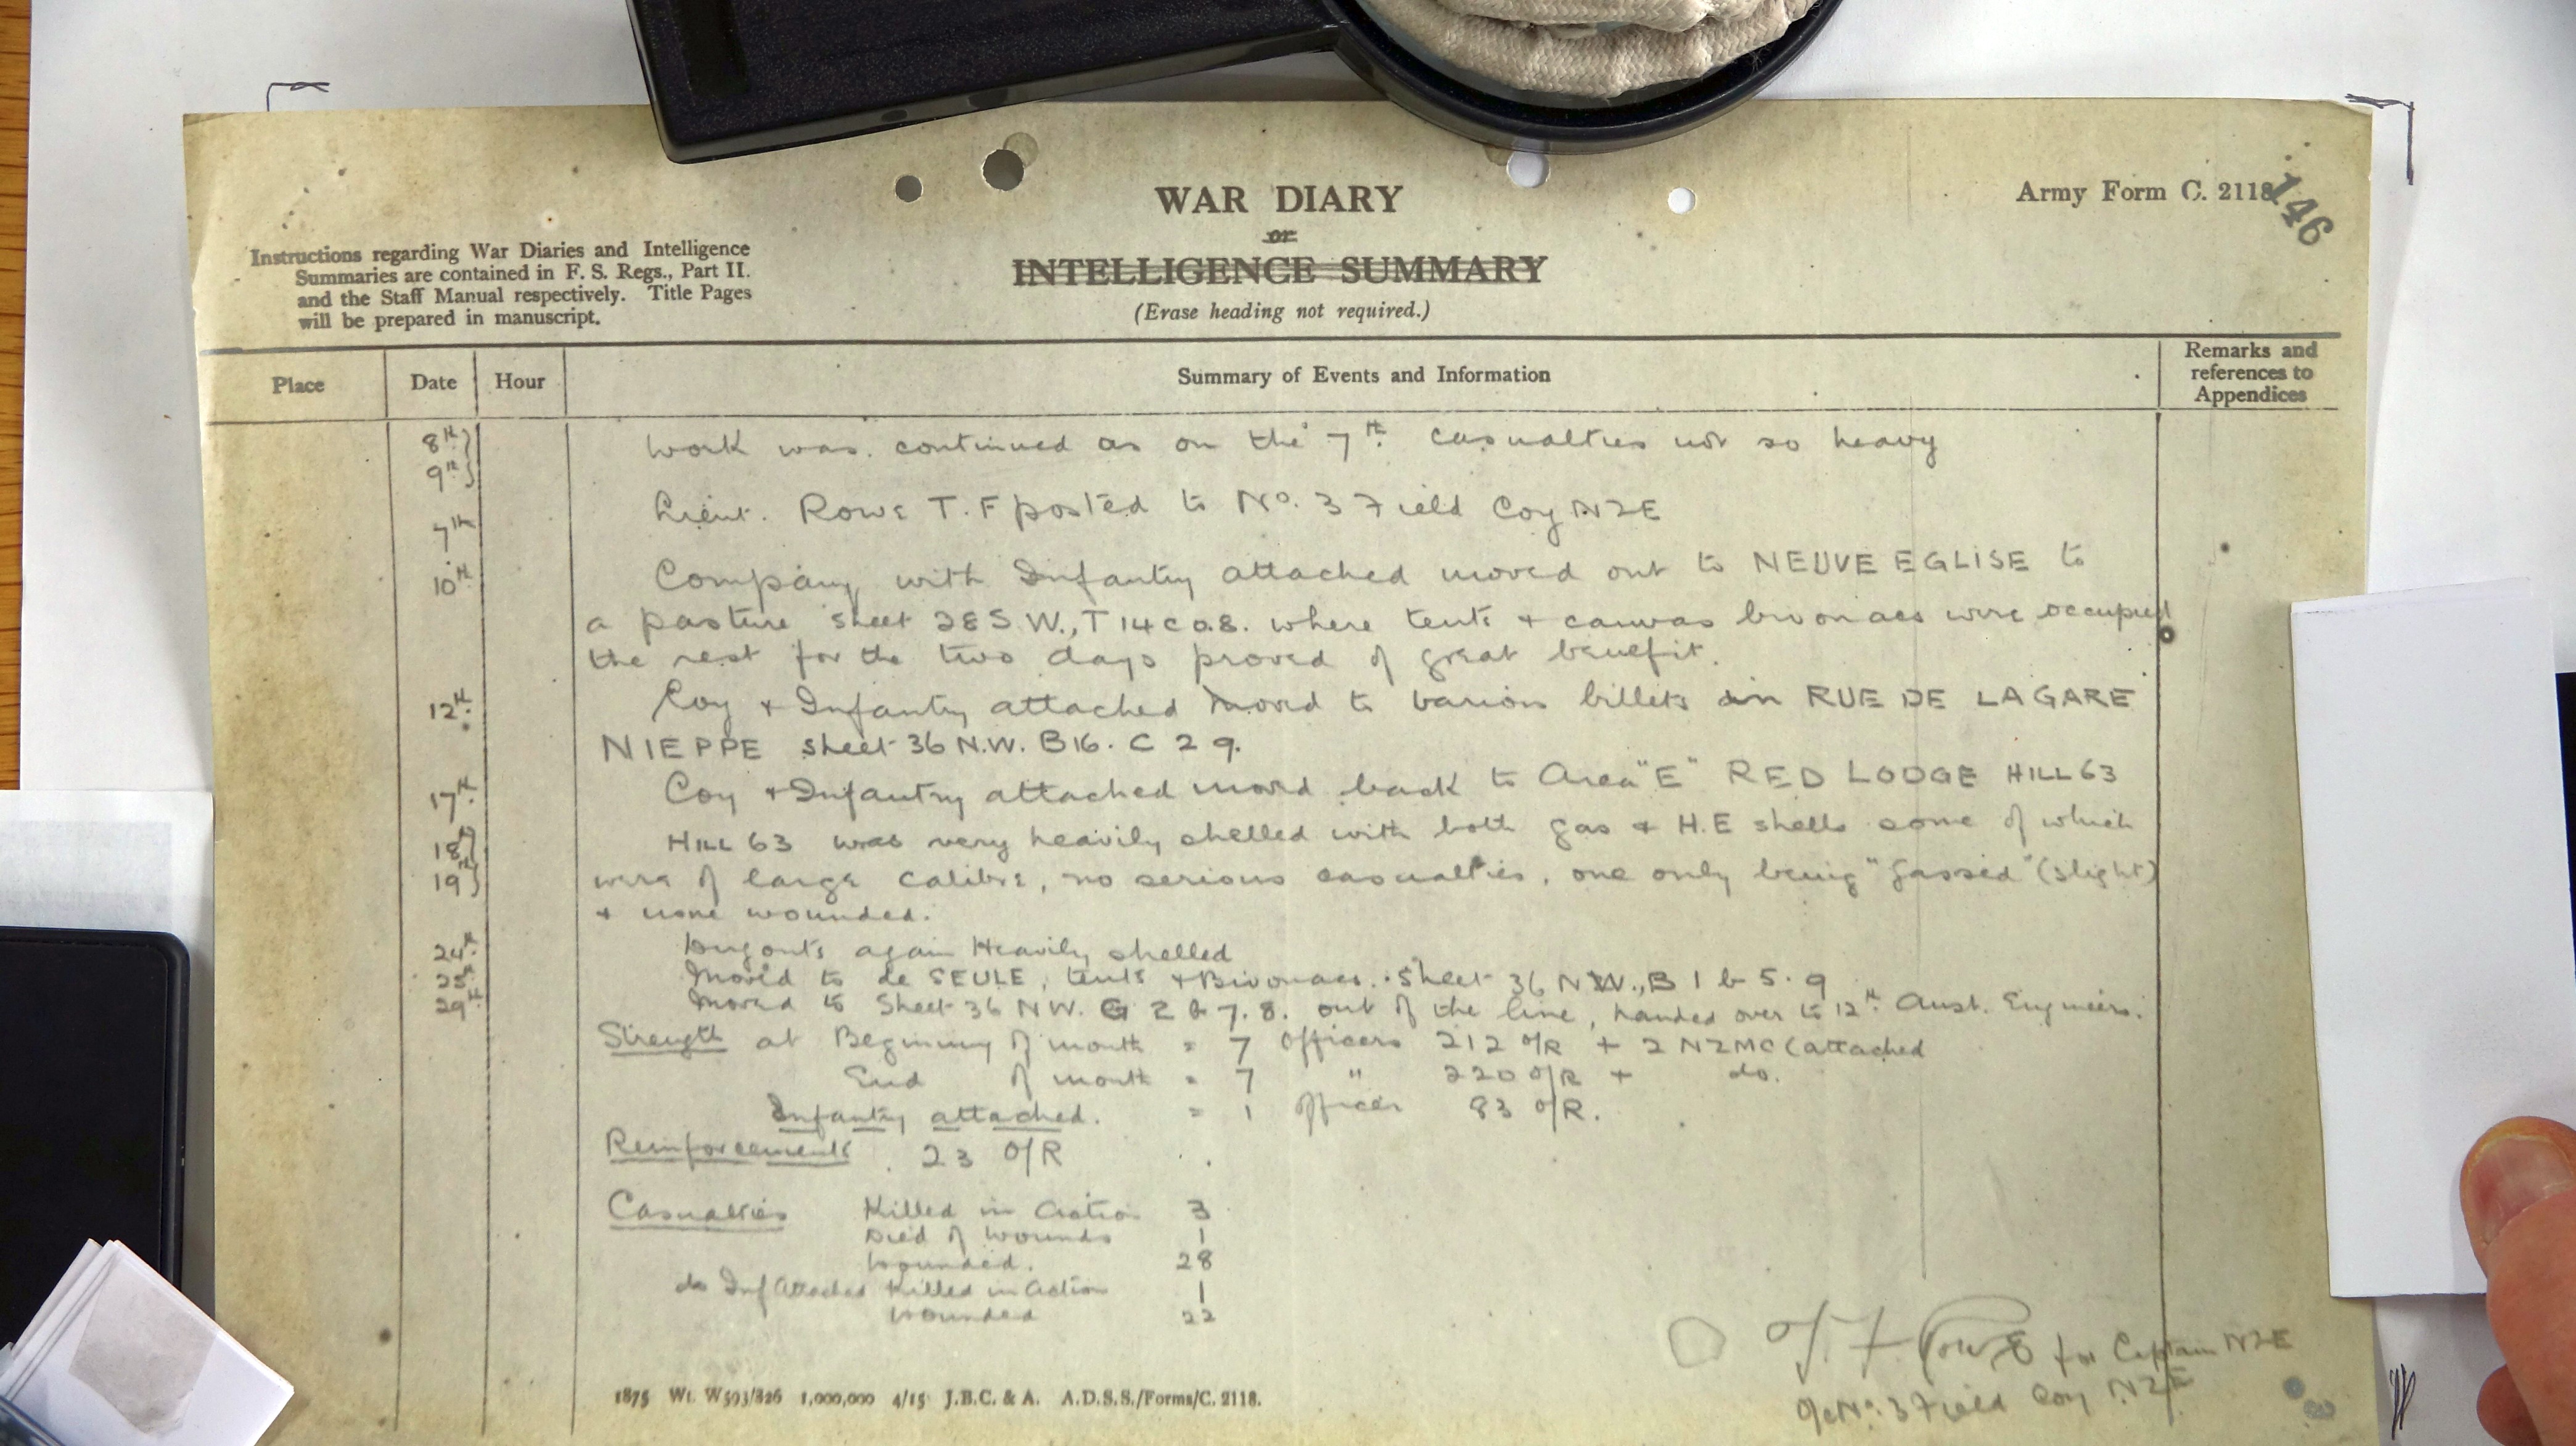 WAR DIARY
or
INTELLIGENCE SUMMARY
(Erase heading not required.)
Army Form C. 2118
146
Instructions regarding War Diaries and Intelligence
Summaries are contained in F. S. Regs., Part II.
and the Staff Manual respectively. Title Pages
will be prepared in manuscript.
Place Date Hour Summary of Events and Information Remarks and references to Appendices
8th } Work was continued as on the 7th. Casualties not so heavy
9th }
7th Lieut. Rowe T. F posted to No. 3 Field Coy NZE
10th Company with Infantry attached moved out to NEUVE EGLISE to
a pasture sheet 28 S.W., T 14 c 0.8. where tents + canvas bivouacs were occupied
the rest for the two days proved of great benefit.
12th. Coy + Infantry attached moved to various billets in RUE DE LA GARE
NIEPPE sheet 36 N.W. B16. C 2 9.
17th. Coy + Infantry attached moved back to Area "E" RED LODGE HILL 63
18th } HILL 63 was very heavily shelled with both gas + H.E shells some of which
19th } were of large calibre, no serious casualties, one only being "gassed" (slight)
+ none wounded.
24th. Dugouts again Heavily shelled
25th. Moved to de SEULE, tents + Bivouacs. Sheet 36 NW., B 1 b 5.9
29th. Moved to Sheet 36 NW. G 2 b 7.8. out of the line, handed over to 12th Aust. Engineers.
Strength at Beginning of month = 7 Officers 212 O/R + 2 NZMC (attached
End of month = 7 " 220 O/R + do.
Infantry attached. = 1 officer 83 O/R.
Reinforcements 23 O/R
Casualties Killed in Action 3
Died of Wounds 1
Wounded. 28
do Inf Attached Killed in Action 1
Wounded 22
T. F. Rowe for Captain NZE
O/c No. 3 Field Coy NZE
1875 Wt. W593/826 1,000,000 4/15 J.B.C. & A. A.D.S.S./Forms/C. 2118.